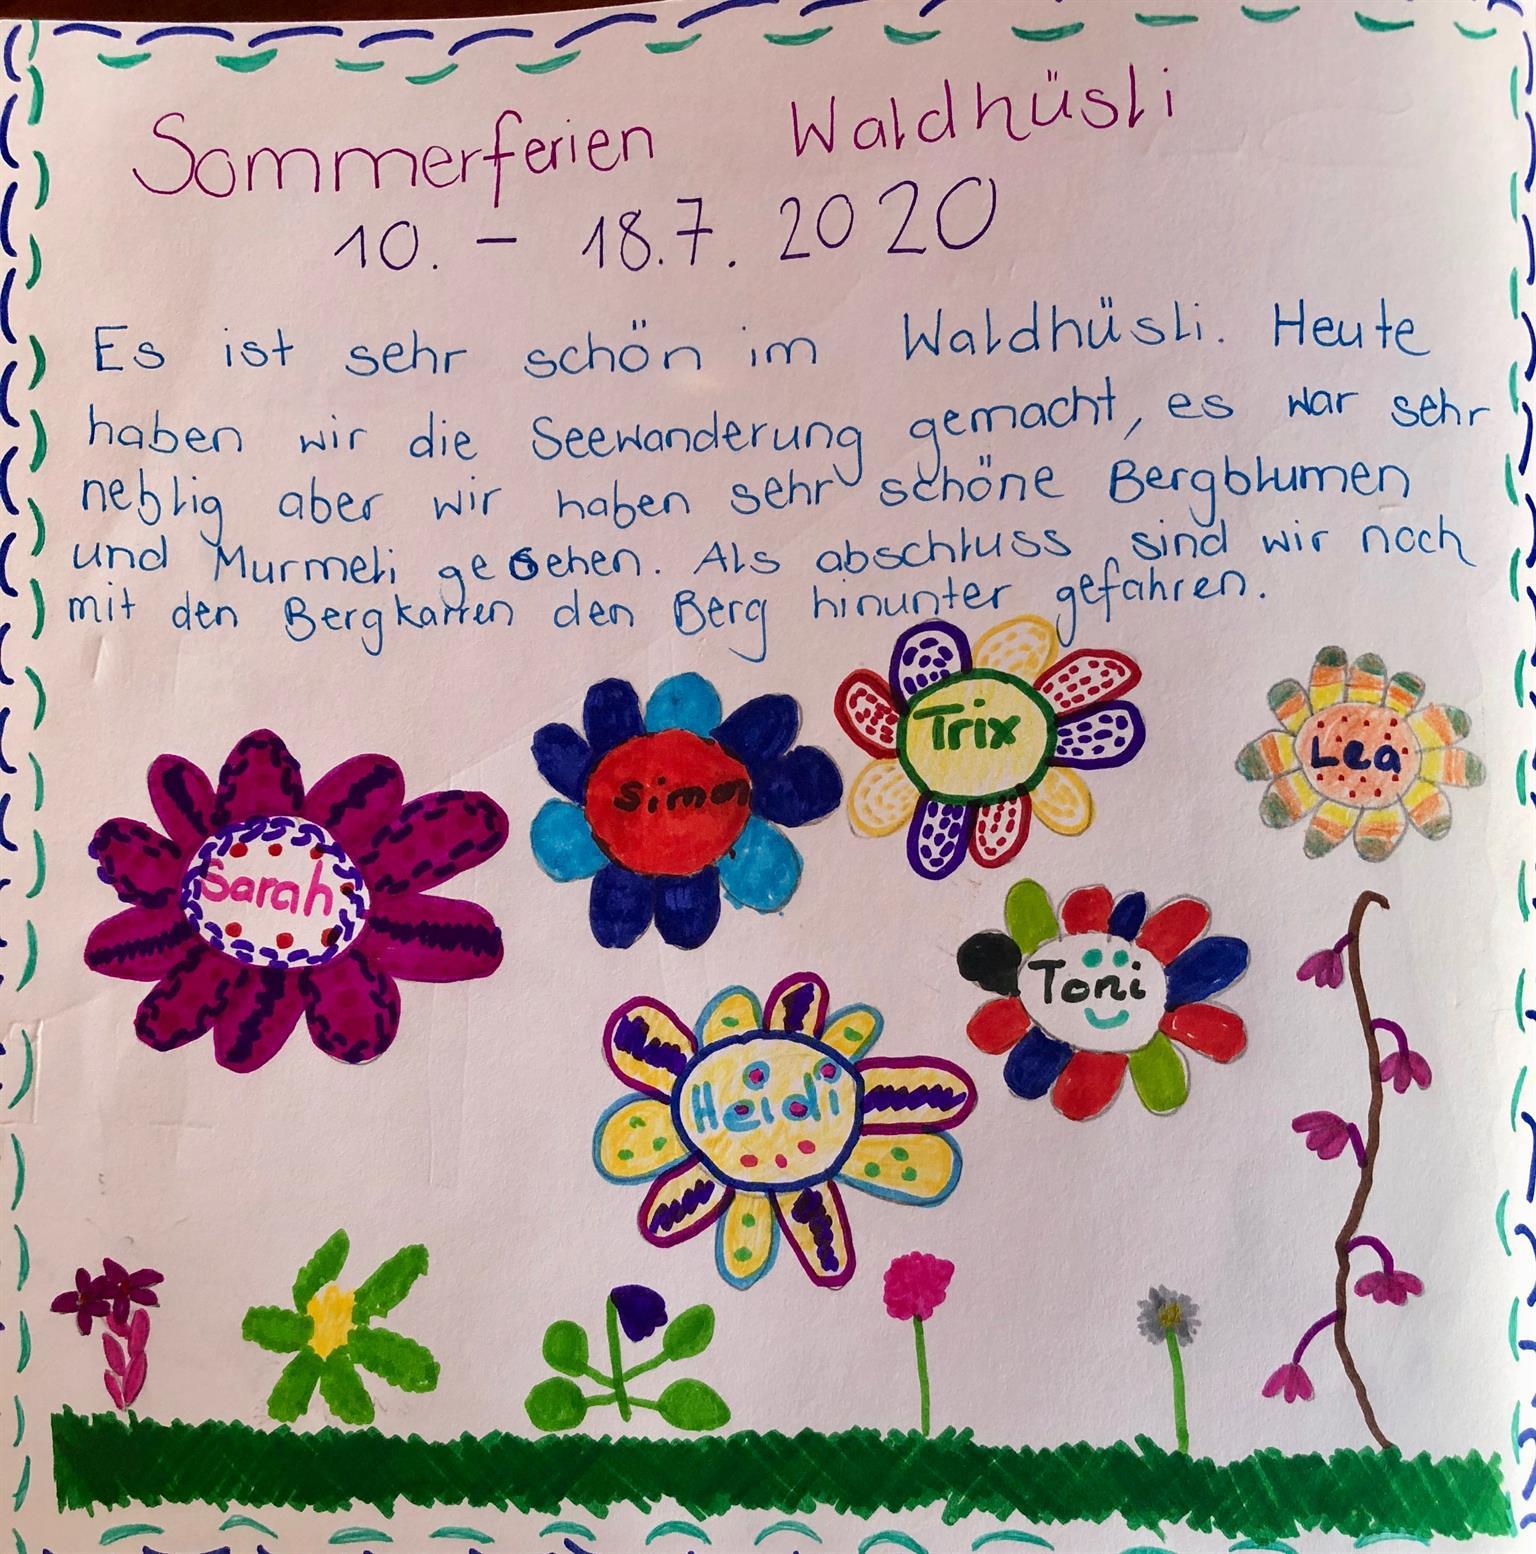 Sommerferien Waldhüsli
10. - 18.7. 2020
Es ist sehr schön im Waldhüsli. Heute
haben wir die Seewanderung gemacht, es war sehr
neblig aber wir haben sehr schöne Bergblumen
und Murmeli gesehen. Als abschluss sind wir noch
mit den Bergkarren den Berg hinunter gefahren.
Trix
Lea
Simon
Sarah
Toni
Heidi